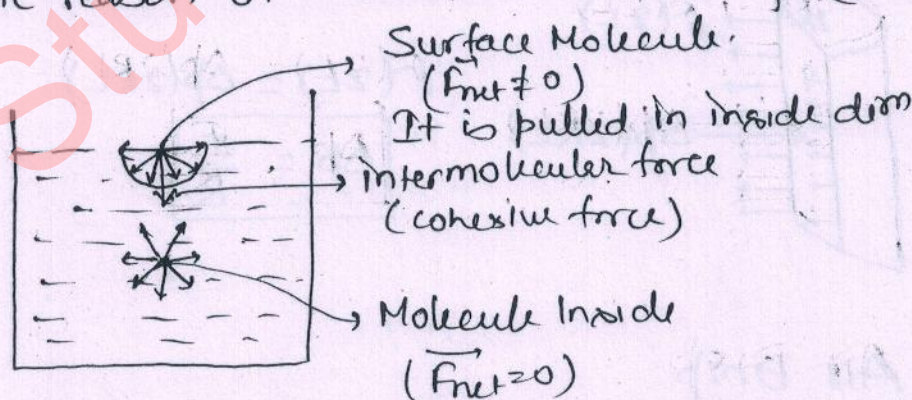 Stu
Surface Molecule.
(Fnet ≠ 0)
It is pulled in inside dirn
intermolecular force
(cohesive force)
Molecule Inside
(Fnet=0)